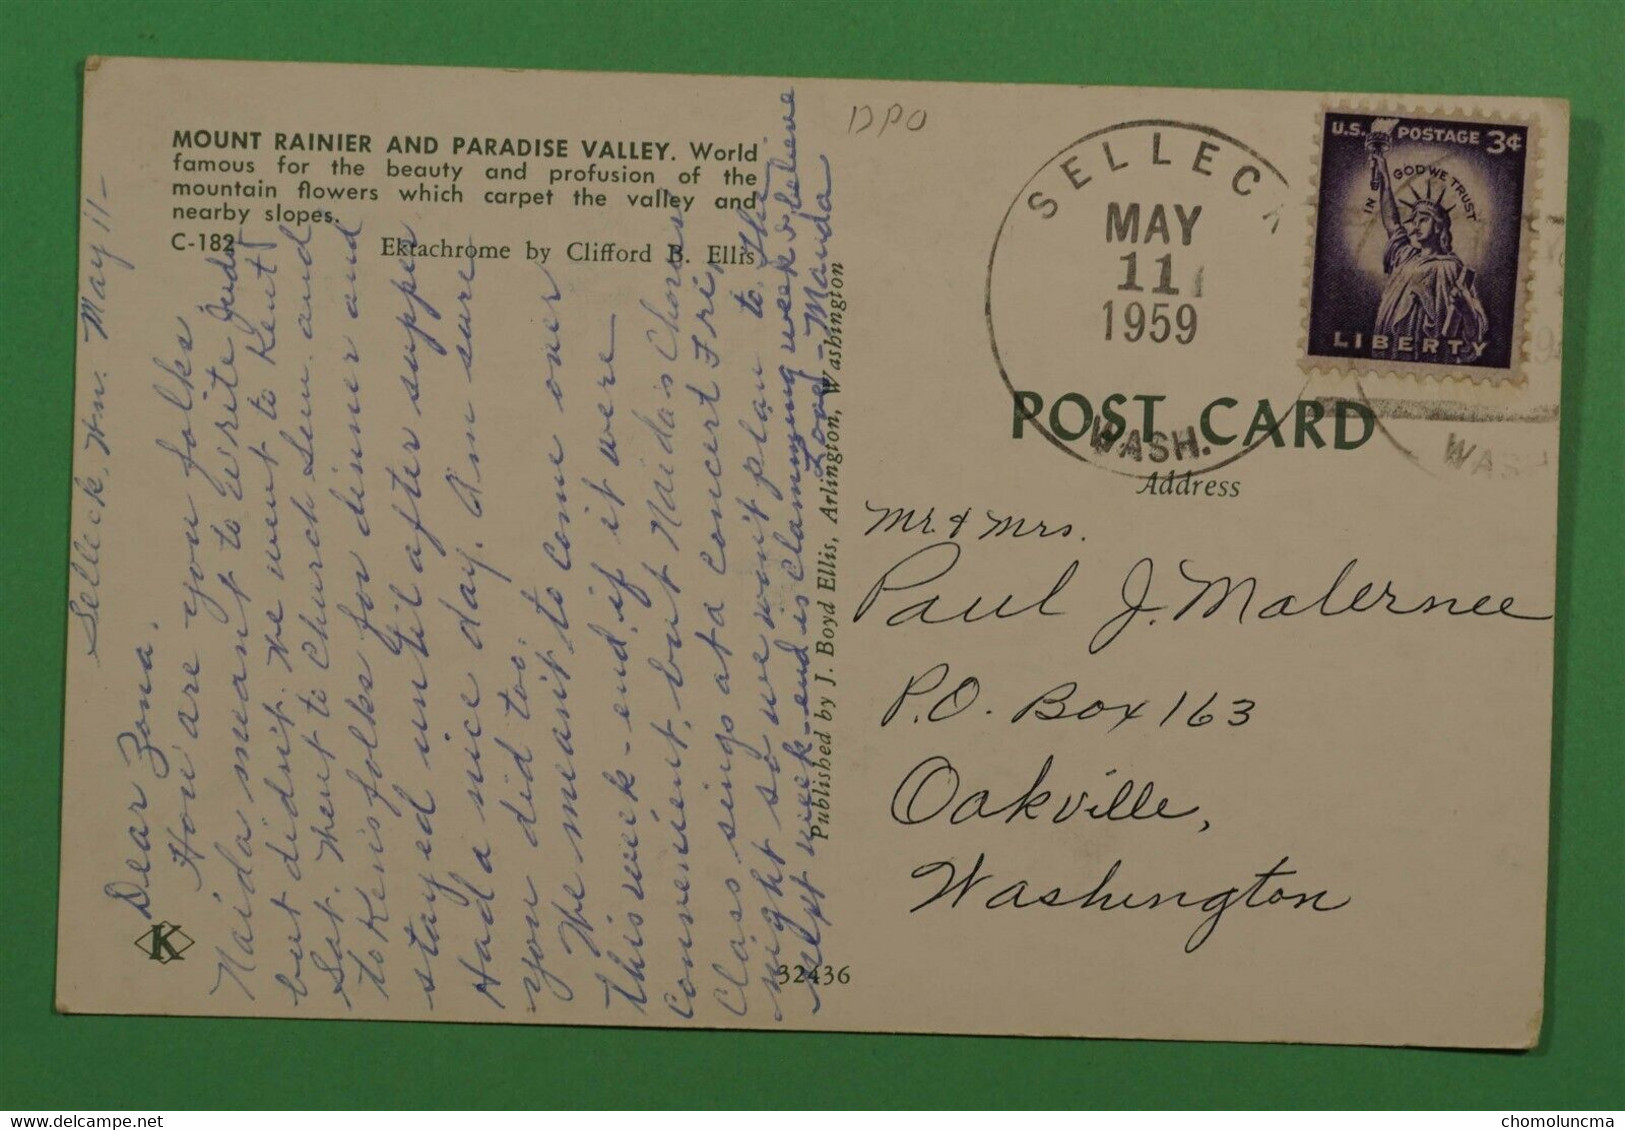 MOUNT RAINIER AND PARADISE VALLEY. World
famous for the beauty and profusion of the
mountain flowers which carpet the valley and
nearby slopes.
C-182
Ektachrome by Clifford B. Ellis
Selleck, Wn. May 11-
Dear Zona.
How are you folks
Naida meant to write
but didnit. We went to Kent
Sat. Went to Church Sun. and
to Kens folks for dinner and
stayed until after supper
Had a nice day. Am sure
you did too.
We meant to come over
this week-end, if it were
convenient, but Naidas Chorus
Class sings at a concert Fri.
night so we wonit plan to. The
next week-end is Clamming week I believe
Love, Manda
Published by J. Boyd Ellis, Arlington, Washington
K
32436
DPO
SELLECK
MAY
11
1959
WASH.
U.S. POSTAGE 3¢
IN GOD WE TRUST
LIBERTY
WAS
POST CARD
Address
Mr. & Mrs.
Paul J. Malernee
P.O. Box 163
Oakville,
Washington
chomoluncma